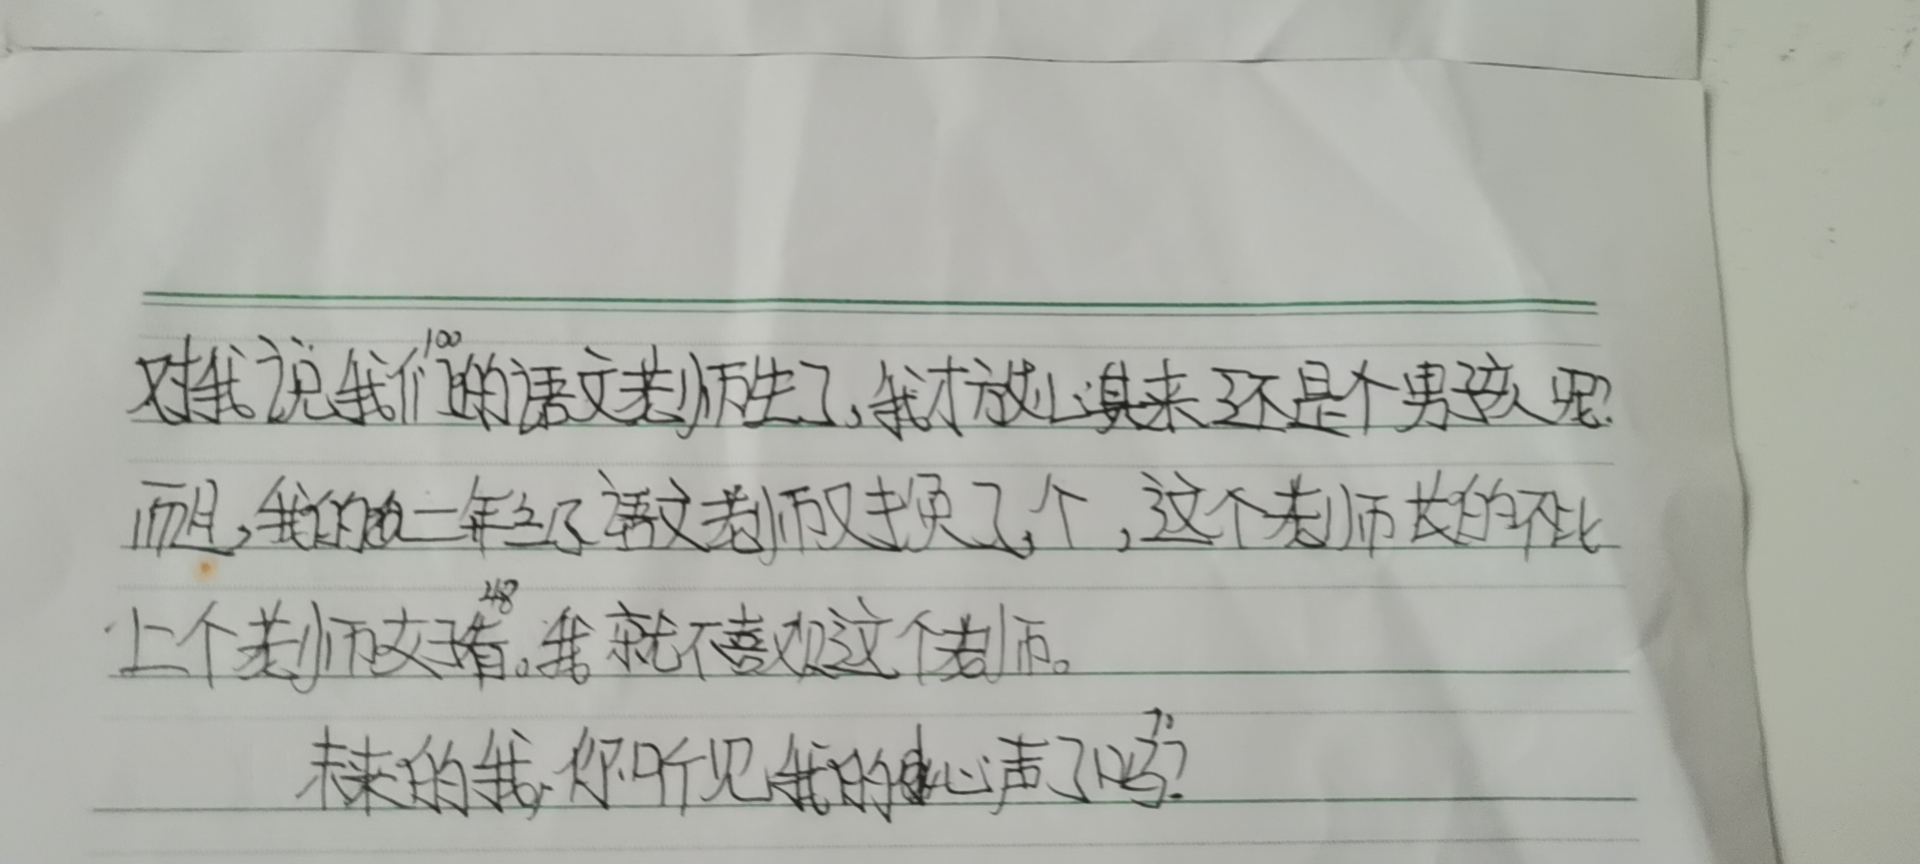 100
对我说我们的语文老师生了,我才放心具来还是个男孩呢?
而且,我的一年级了语文老师又换了,个,这个老师长的不比
48
上个老师好看。我就不喜欢这个老师。
未来的我,你听见我的心声了吗?